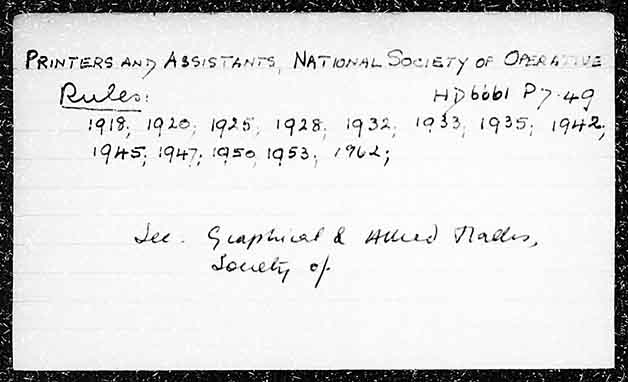 PRINTERS AND ASSISTANTS, NATIONAL SOCIETY OF OPERATIVE
Rules: HD6661 P7.49
1918; 1920; 1925; 1928; 1932; 1933; 1935; 1942;
1945; 1947; 1950; 1953; 1962;
See. Graphical & Allied Trades,
Society of